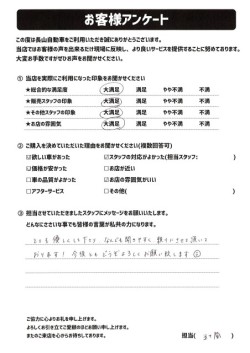 お客様アンケート
この度は長山自動車をご利用いただき誠にありがとうございます。
当店ではお客様の声を出来るだけ現場に反映し、より良いサービスを提供することに努めております。
大変お手数ですがぜひお声をお聞かせください。
① 当店を実際にご利用になった印象をお聞かせください
★総合的な満足度 大満足 満足 やや不満 不満
★販売スタッフの印象 大満足 満足 やや不満 不満
★その他スタッフの印象 大満足 満足 やや不満 不満
★お店の雰囲気 大満足 満足 やや不満 不満
② ご購入を決めていただいた理由をお聞かせください(複数回答可)
☑欲しい車があった ☑スタッフの対応がよかった(担当スタッフ: )
☑価格が安かった □お店が近い
□車の品質がよかった □お店の雰囲気がいい
□アフターサービス □その他( )
③ 担当させていただきましたスタッフにメッセージをお願いいたします。
どんなにささいな事でも皆様の言葉が私共の力になります。
とても優しくして下さり なんでも聞きやすく
おります! 今後ともどうぞよろしくお願い致します
ご協力に心よりお礼を申し上げます。
よろしくお引き立てご愛顧のほどお願い申し上げます。
またのご来店を心からお待ちしております。
担当( )